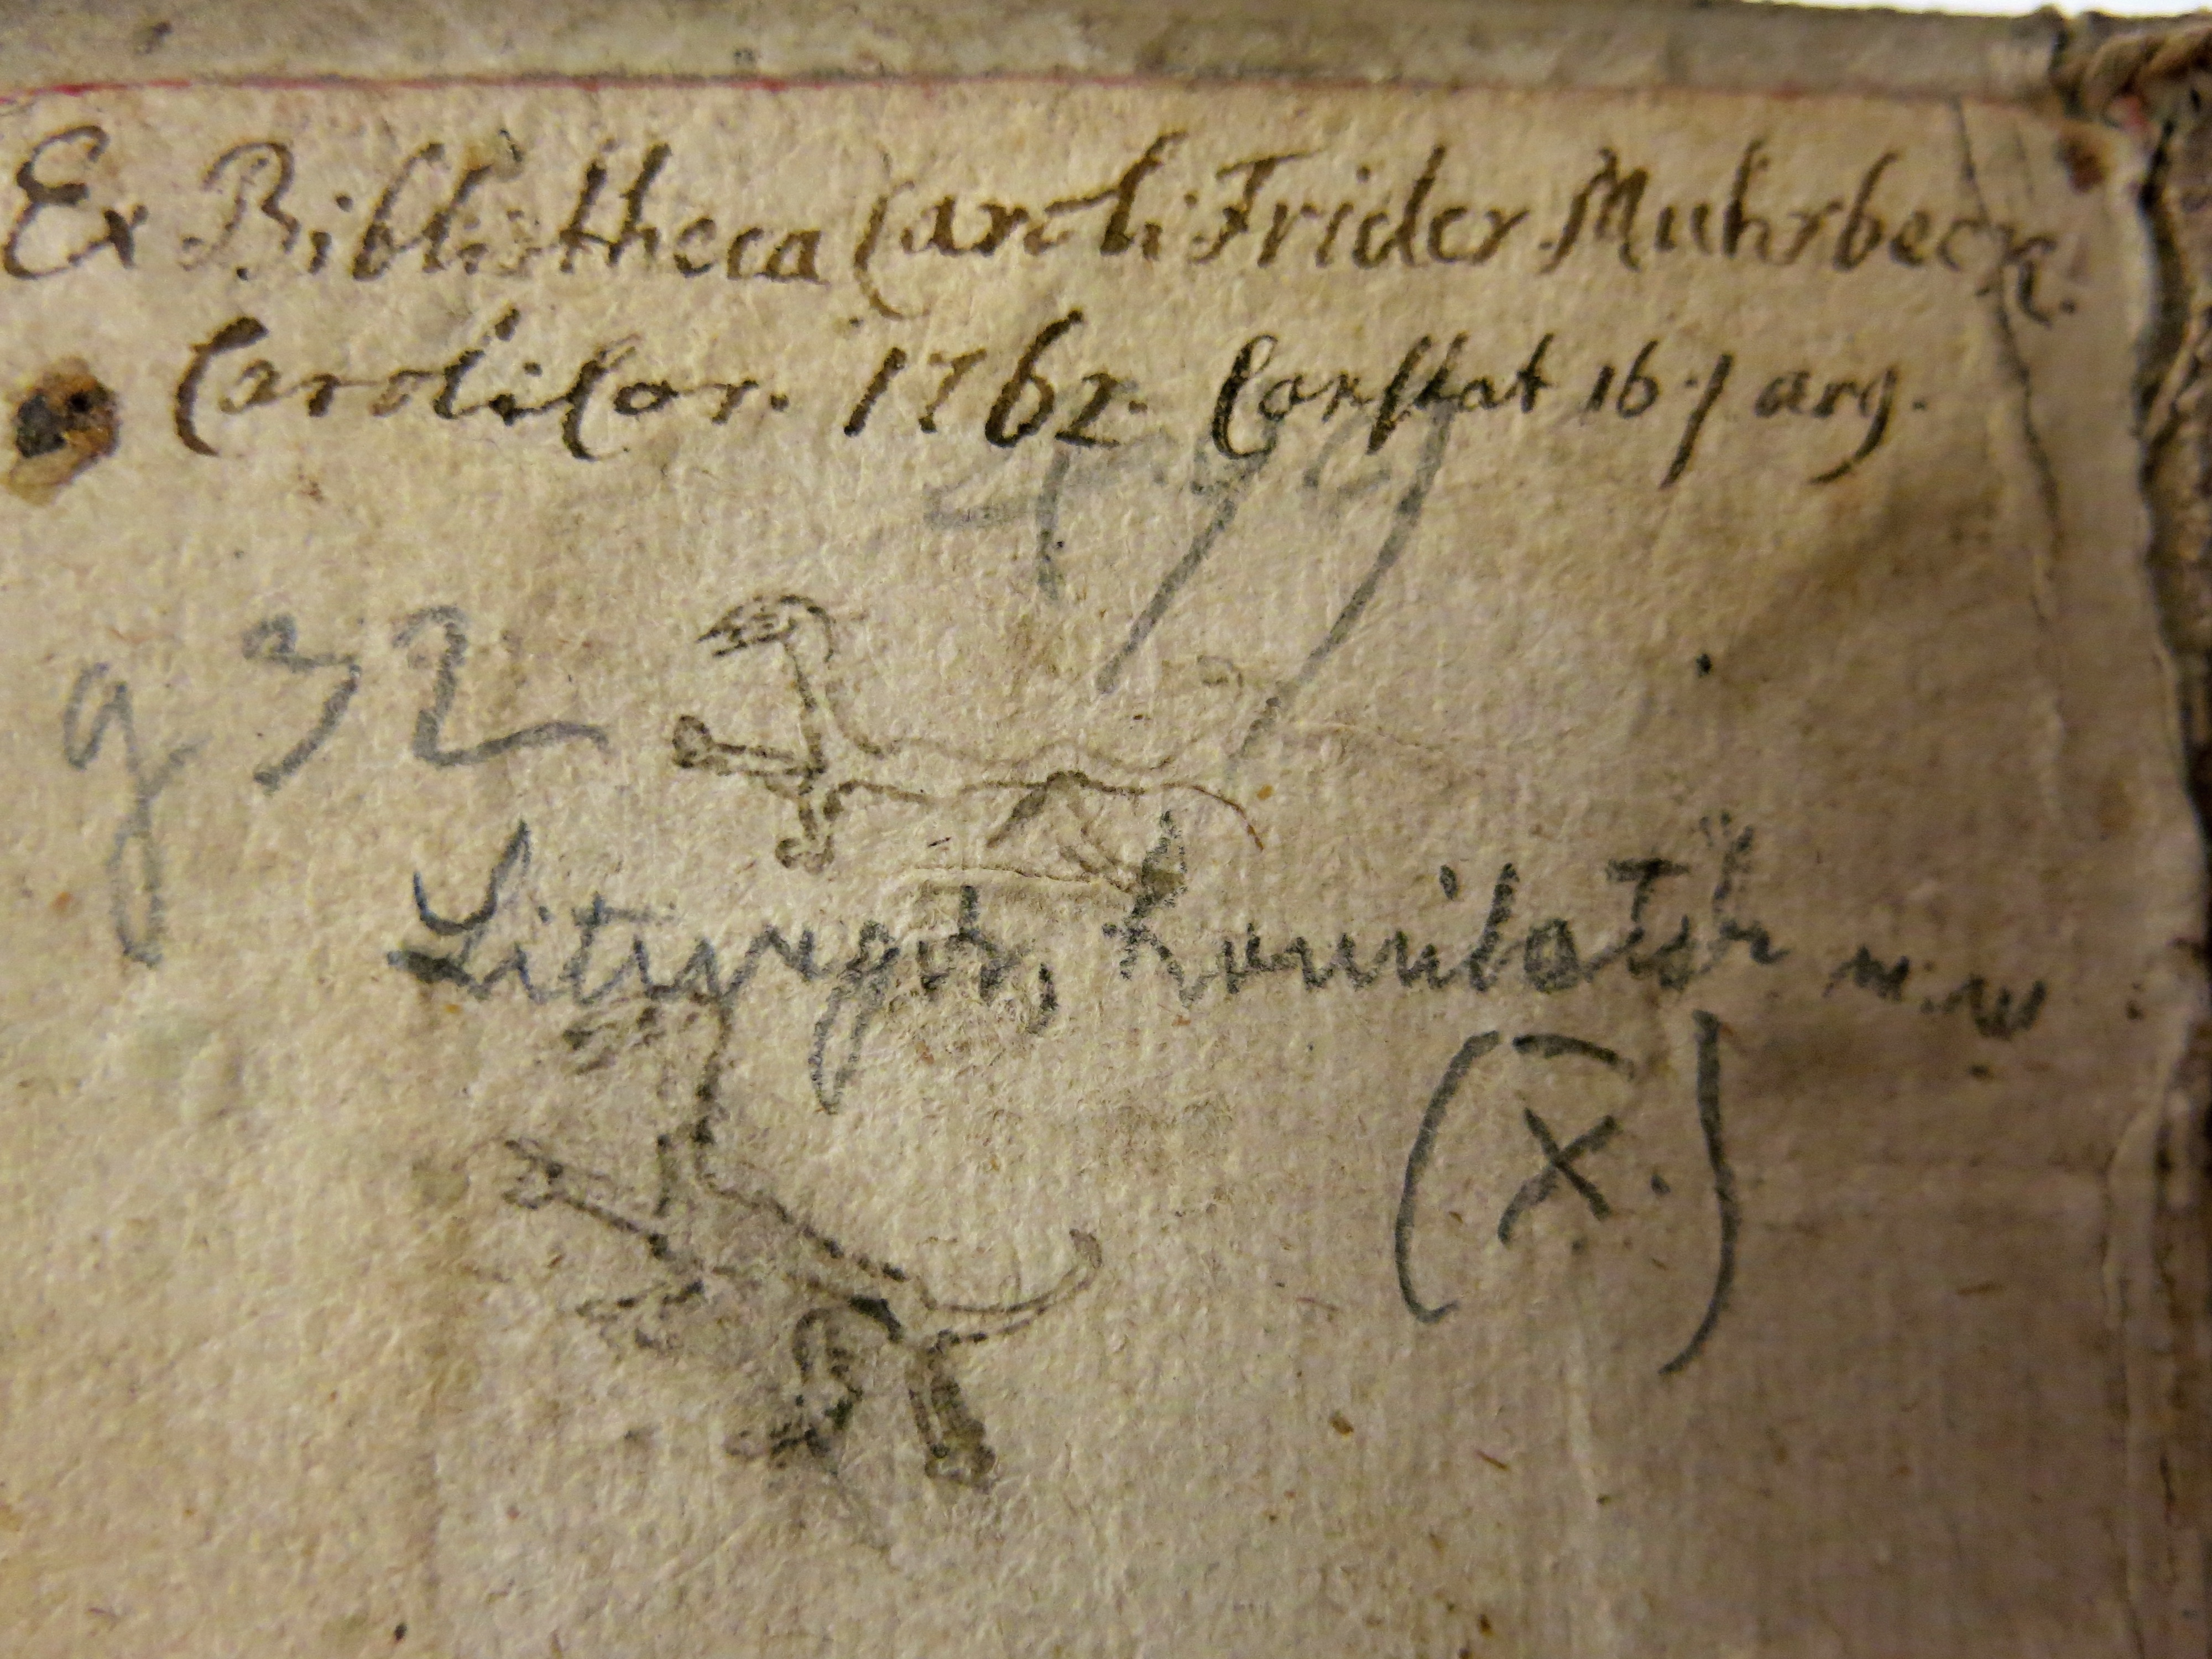 Ex Bibliotheca Caroli Frider Muhrbeck.
CaroliCor. 1762. Constat 16 / arg.
g 32
Liturgik, Homiletik m.m
(X.)